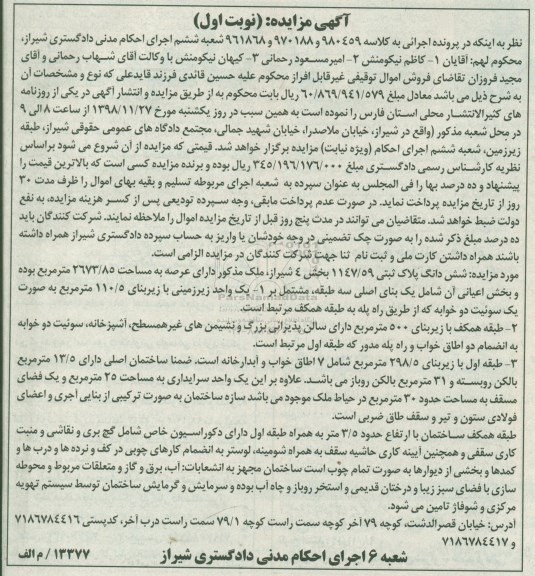 آگهی مزایده: (نوبت اول)
نظر به اینکه در پرونده اجرائی به کلاسه ۹۸۰۴۵۹ و ۹۷۰۱۸۸ و ۹۶۱۸۶۸ شعبه ششم اجرای احکام مدنی دادگستری شیراز،
محکوم لهم: آقایان ۱- کاظم نیکومنش ۲- امیرمسعود رحمانی ۳- کیهان نیکومنش با وکالت آقای شهاب رحمانی و آقای
مجید فروزان تقاضای فروش اموال توقیفی غیرقابل افراز محکوم علیه حسین قاندی فرزند قایدعلی که نوع و مشخصات آن
به شرح ذیل می باشد معادل مبلغ ۶۰/۸۶۹/۹۴۱/۵۷۹ ریال بابت محکوم به از طریق مزایده و انتشار آگهی در یکی از روزنامه
های کثیرالانتشار محلی استان فارس را نموده است به همین سبب در روز یکشنبه مورخ ۱۳۹۸/۱۱/۲۷ از ساعت ۸ الی ۹
در محل شعبه مذکور (واقع در شیراز، خیابان ملاصدرا، خیابان شهید جمالی، مجتمع دادگاه های عمومی حقوقی شیراز، طبقه
زیرزمین، شعبه ششم اجرای احکام (ویژه نیابت) مزایده برگزار خواهد شد. قیمتی که مزایده از آن شروع می شود براساس
نظریه کارشناس رسمی دادگستری مبلغ ۳۴۵/۱۹۶/۱۷۶/۰۰۰ ریال بوده و برنده مزایده کسی است که بالاترین قیمت را
پیشنهاد و ده درصد بها را فی المجلس به عنوان سپرده به شعبه اجرای مربوطه تسلیم و بقیه بهای اموال را ظرف مدت ۳۰
روز از تاریخ مزایده پرداخت نماید. در صورت عدم پرداخت مابقی، وجه سپرده تودیعی پس از کسر هزینه مزایده، به نفع
دولت ضبط خواهد شد. متقاضیان می توانند در مدت پنج روز قبل از تاریخ مزایده اموال را ملاحظه نمایند. شرکت کنندگان باید
ده درصد مبلغ ذکر شده را به صورت چک تضمینی در وجه خودشان یا واریز به حساب سپرده دادگستری شیراز همراه داشته
باشند همراه داشتن کارت ملی و ثبت نام ثنا جهت شرکت کنندگان در مزایده الزامی است.
مورد مزایده: شش دانگ پلاک ثبتی ۱۱۴۷/۵۹ بخش ۴ شیراز، ملک مذکور دارای عرصه به مساحت ۲۶۷۳/۸۵ مترمربع بوده
و بخش اعیانی آن شامل یک بنای اصلی سه طبقه، مشتمل بر ۱- یک واحد زیرزمینی با زیربنای ۱۱۰/۵ مترمربع به صورت
یک سوئیت دو خوابه که از طریق راه پله به طبقه همکف مرتبط است.
۲- طبقه همکف با زیربنای ۵۰۰ مترمربع دارای سالن پذیرائی بزرگ و نشیمن های غیرهمسطح، آشپزخانه، سوئیت دو خوابه
به انضمام دو اطاق خواب و راه پله مدور که طبقه اول مرتبط است.
۳- طبقه اول با زیربنای ۲۹۸/۵ مترمربع شامل ۷ اطاق خواب و آبدارخانه است، ضمنا ساختمان اصلی دارای ۱۳/۵ مترمربع
بالکن روبسته و ۳۱ مترمربع بالکن روباز می باشد. علاوه بر این یک واحد سرایداری به مساحت ۲۵ مترمربع و یک فضای
مسقف به مساحت حدود ۳۰ مترمربع در حیاط ملک موجود می باشد سازه ساختمان به صورت ترکیبی از بنایی آجری و اعضای
فولادی ستون و تیر و سقف طاق ضربی است.
طبقه همکف ساختمان با ارتفاع حدود ۳/۵ متر به همراه طبقه اول دارای دکوراسیون خاص شامل گچ بری و نقاشی و منبت
کاری سقفی و همچنین آیینه کاری حاشیه سقف به همراه شومینه، لوستر به انضمام کارهای چوبی در کف و نرده ها و درب ها و
کمدها و بخشی از دیوارها به صورت تمام چوب است ساختمان مجهز به انشعابات: آب، برق و گاز و متعلقات مربوط و محوطه
سازی با فضای سبز زیبا و درختان قدیمی و استخر روباز و چاه آب بوده و سرمایش و گرمایش ساختمان توسط سیستم تهویه
مرکزی و شوفاژ تامین می شود.
آدرس: خیابان قصرالدشت، کوچه ۷۹ آخر کوچه سمت راست کوچه ۷۹/۱ سمت راست درب آخر، کدپستی ۷۱۸۶۷۸۴۴۱۶
و ۷۱۸۶۷۸۴۴۱۷
شعبه ۶ اجرای احکام مدنی دادگستری شیراز
۱۳۳۷۷ / م الف